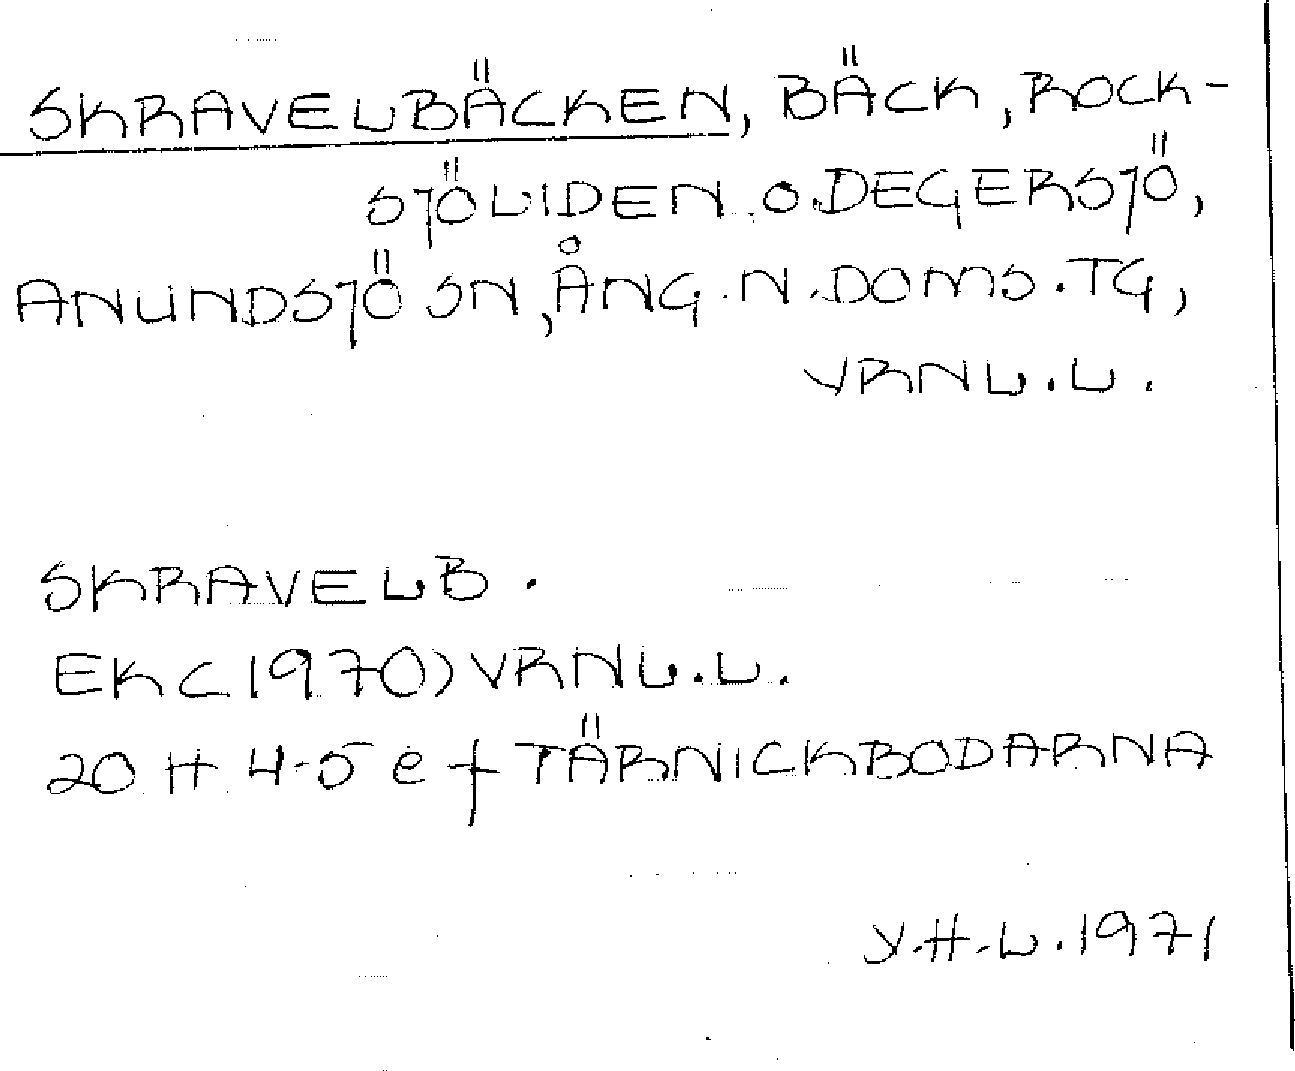 SKRAVELBÄCKEN, BÄCK, ROCK-
SJÖLIDEN O. DEGERSJÖ,
ANUNDSJÖ SN, ÅNG. N. DOMS. TG,
VRNL. L.
SKRAVELB.
EK (1970) VRNL. L.
20 H 4-5 e f TÄRNICKBODARNA
Y.H.L. 1971